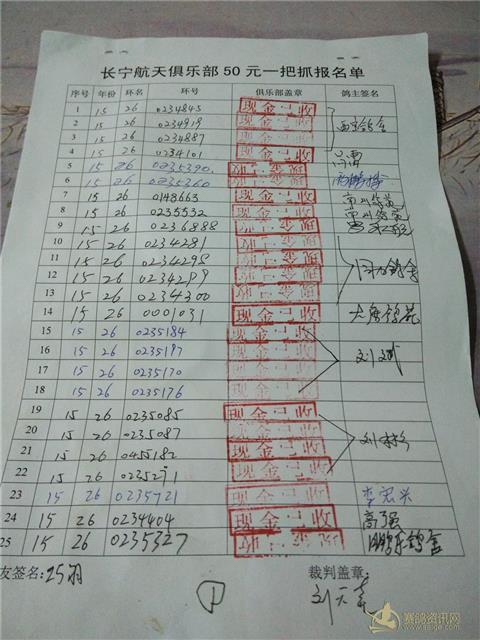 长宁航天俱乐部50元一把抓报名单
序号 年份 环名 环号 俱乐部盖章 鸽主签名
1 15 26 0234845 现金已收
2 15 26 0234919 现金已收
3 15 26 0234887 现金已收
4 15 26 0234101 现金已收
5 15 26 0235390 现金已收
6 15 26 0235360 现金已收
7 15 26 0148663 现金已收
8 15 26 0235532 现金已收
9 15 26 0236888 现金已收
10 15 26 0234281 现金已收
11 15 26 0234298 现金已收
12 15 26 0234299 现金已收
13 15 26 0234300 现金已收
14 15 26 0001031 现金已收
15 15 26 0235184 现金已收
16 15 26 0235197 现金已收 刘斌
17 15 26 0235170 现金已收
18 15 26 0235176 现金已收
19 15 26 0235085 现金已收
20 15 26 0235087 现金已收
21 15 26 0455182 现金已收
22 15 26 现金已收
23 15 26 0235721 现金已收
24 15 26 0234404 现金已收 高强
25 15 26 0235327 现金已收
友签名: 裁判盖章:
①
赛鸽资讯网